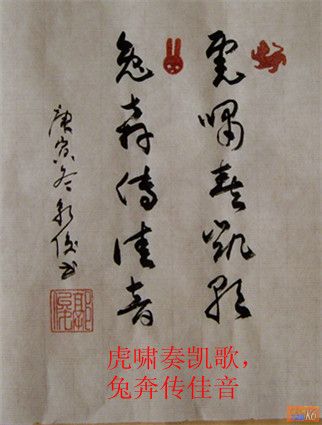 虎嘯奏凱歌
兔奔傳佳音
庚寅冬書
虎啸奏凯歌，
兔奔传佳音